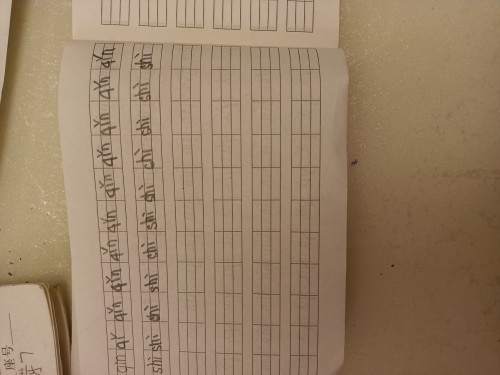 qin qǐ qǐn qǐn qǐn qǐn qǐn qǐn qǐn qǐn qǐn
shì shì shì shì chì shì shì chì shì shì shì
座号